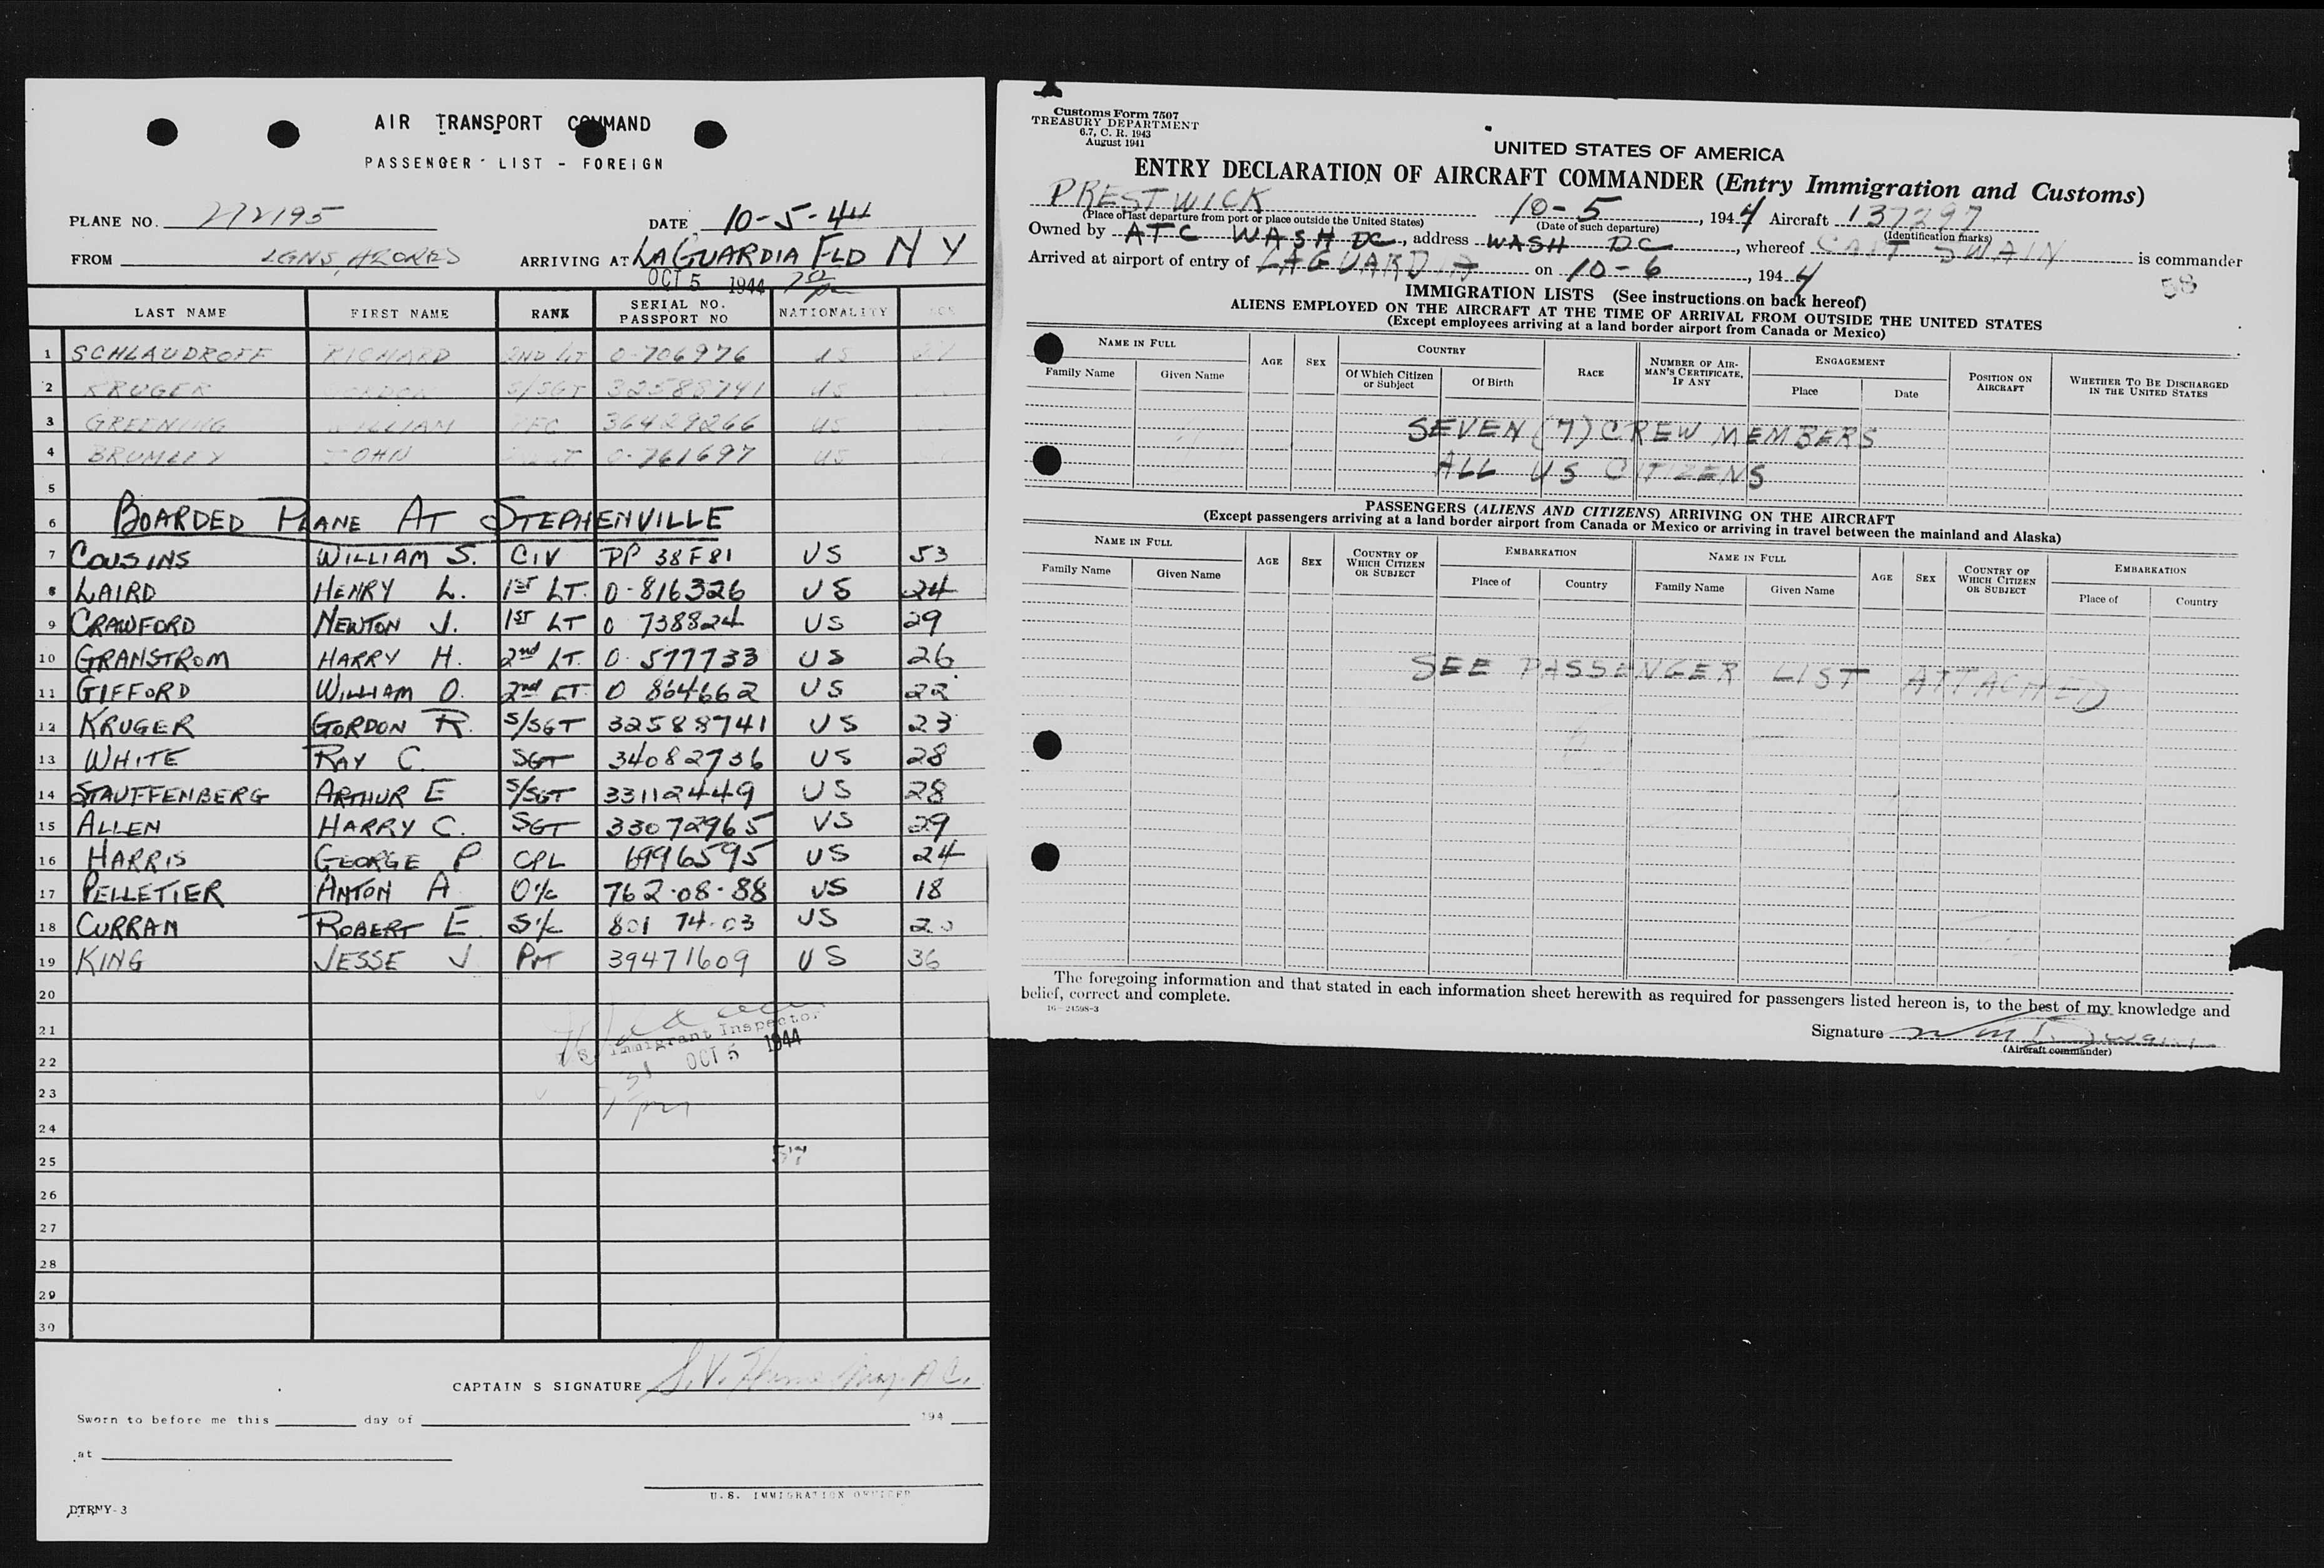 AIR TRANSPORT COMMAND
PASSENGER LIST - FOREIGN
PLANE NO. 272195 DATE 10-5-44
FROM ARRIVING AT LAGUARDIA FLD N Y
OCT 5 1944
LAST NAME FIRST NAME RANK SERIAL NO. PASSPORT NO NATIONALITY AGE
1 SCHLAUDROFF RICHARD 2ND LT 0-706976 US
2 KRUGER GORDON S/SGT 32588741 US
3 GREENING WILLIAM PFC 36429266 US
4 BRUMLEY JOHN 0-761697 US
5
6 BOARDED PLANE AT STEPHENVILLE
7 COUSINS WILLIAM S. CIV PP 38F81 US 53
8 LAIRD HENRY L. 1ST LT. 0-816326 US 24
9 CRAWFORD NEWTON J. 1ST LT 0 738824 US 29
10 GRANSTROM HARRY H. 2nd LT. 0-577733 US 26
11 GIFFORD WILLIAM O. 2nd LT. 0 864662 US 22
12 KRUGER GORDON R. S/SGT 32588741 US 23
13 WHITE RAY C. SGT 34082736 US 28
14 STAUFFENBERG ARTHUR E S/SGT 33112449 US 28
15 ALLEN HARRY C. SGT 33072965 US 29
16 HARRIS GEORGE P CPL 6996595 US 24
17 PELLETIER ANTON A 762-08-88 US 18
18 CURRAN ROBERT E. S1/c 801 74-03 US
19 KING JESSE J PVT 39471609 US 36
20
21
22
23
24
25
26
27
28
29
30
U.S. Immigrant Inspector
OCT 5 1944
31
57
CAPTAIN S SIGNATURE
Sworn to before me this day of 194
at
U.S. IMMIGRATION OFFICER
DTRNY-3
Customs Form 7507
TREASURY DEPARTMENT
6.7, C. R. 1943
August 1941
UNITED STATES OF AMERICA
ENTRY DECLARATION OF AIRCRAFT COMMANDER (Entry Immigration and Customs)
PRESTWICK 10-5, 1944 Aircraft 137297
(Place of last departure from port or place outside the United States) (Date of such departure) (Identification marks)
Owned by ATC WASH DC, address WASH DC, whereof CAPT SWAIN is commander
Arrived at airport of entry of LAGUARDIA on 10-6, 1944
58
IMMIGRATION LISTS (See instructions on back hereof)
ALIENS EMPLOYED ON THE AIRCRAFT AT THE TIME OF ARRIVAL FROM OUTSIDE THE UNITED STATES
(Except employees arriving at a land border airport from Canada or Mexico)
NAME IN FULL AGE SEX COUNTRY RACE NUMBER OF AIRMAN'S CERTIFICATE, IF ANY ENGAGEMENT POSITION ON AIRCRAFT WHETHER TO BE DISCHARGED IN THE UNITED STATES
Family Name Given Name Of Which Citizen or Subject Of Birth Place Date
SEVEN (7) CREW MEMBERS
ALL US CITIZENS
PASSENGERS (ALIENS AND CITIZENS) ARRIVING ON THE AIRCRAFT
(Except passengers arriving at a land border airport from Canada or Mexico or arriving in travel between the mainland and Alaska)
NAME IN FULL AGE SEX COUNTRY OF WHICH CITIZEN OR SUBJECT EMBARKATION NAME IN FULL AGE SEX COUNTRY OF WHICH CITIZEN OR SUBJECT EMBARKATION
Family Name Given Name Place of Country Family Name Given Name Place of Country
SEE PASSENGER LIST ATTACHED
The foregoing information and that stated in each information sheet herewith as required for passengers listed hereon is, to the best of my knowledge and
belief, correct and complete.
16-24598-3
Signature Wm Swain
(Aircraft commander)